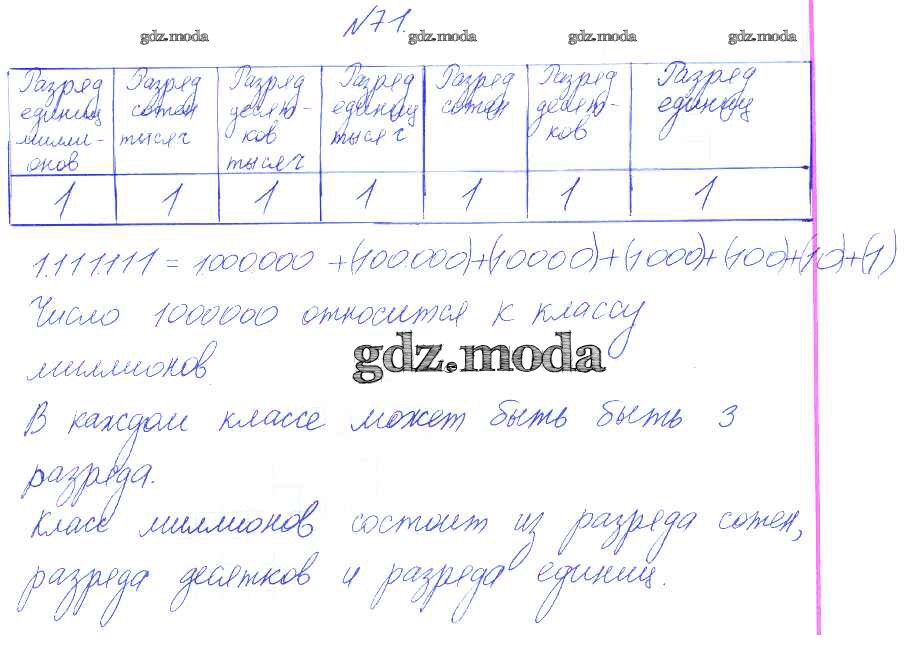 №71.
gdz.moda gdz.moda gdz.moda gdz.moda
Разряд единиц милли-онов
Разряд сотен тысяч
Разряд десят-ков тысяч
Разряд единиц тысяч
Разряд сотен
Разряд десят-ков
Разряд единиц
1 1 1 1 1 1 1
1.111.111 = 1000000 +(100000)+(10000)+(1000)+(100)+(10)+(1)
Число 1000000 относится к классу
миллионов
gdz.moda
В каждом классе может быть быть 3
разряда.
Класс миллионов состоит из разряда сотен,
разряда десятков и разряда единиц.